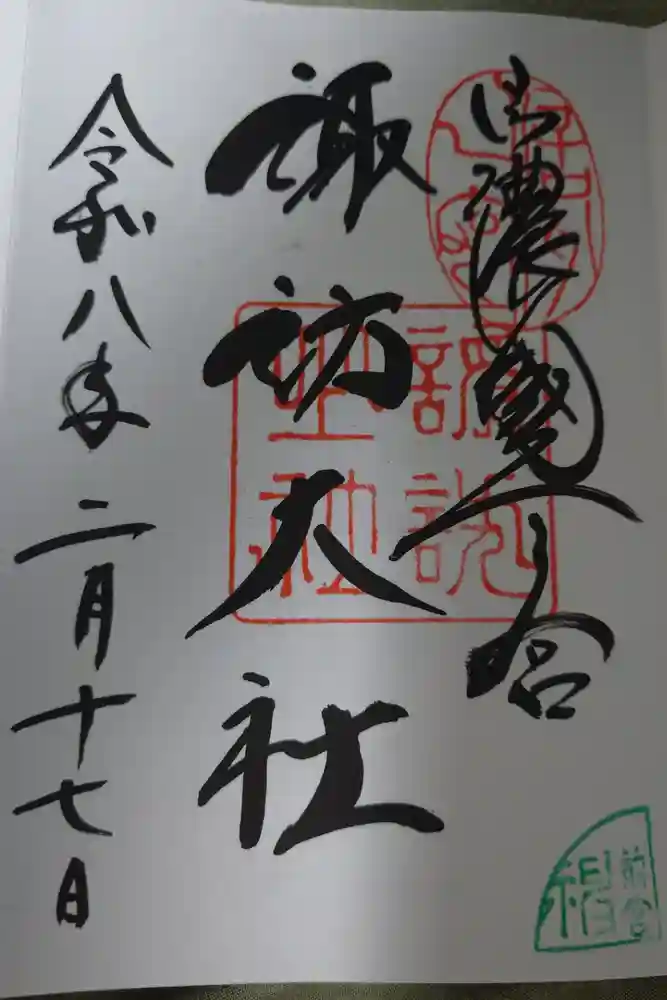 信濃國一ノ宮
諏訪大社
令和八年二月十七日
諏訪
上社
前宮